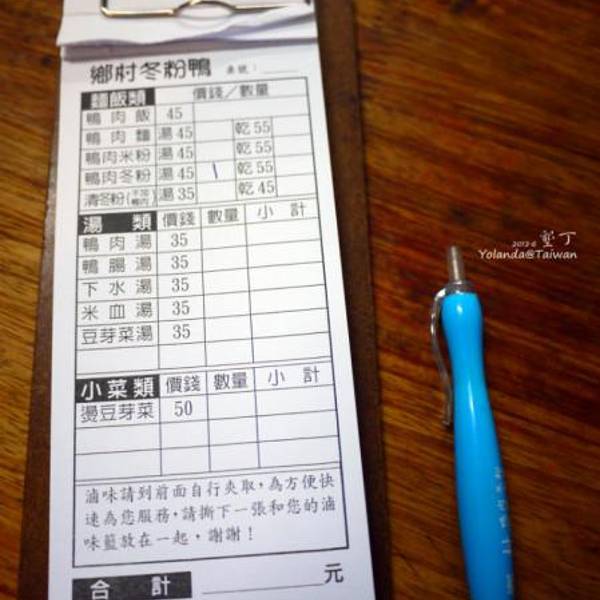 鄉村冬粉鴨 桌號：
麵飯類 價錢／數量
鴨肉飯 45
鴨肉麵 湯45 乾55
鴨肉米粉 湯45 乾55
鴨肉冬粉 湯45 \ 乾55
清冬粉(不加鴨肉) 湯35 乾45
湯類 價錢 數量 小計
鴨肉湯 35
鴨腸湯 35
下水湯 35
米血湯 35
豆芽菜湯 35
小菜類 價錢 數量 小計
燙豆芽菜 50
滷味請到前面自行夾取，為方便快
速為您服務，請撕下一張和您的滷
味籃放在一起，謝謝！
合計 元
2012-6 墾丁
Yolanda@Taiwan